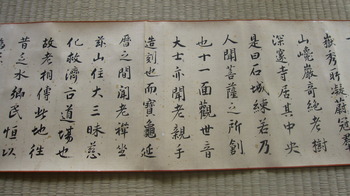 嶽秀凝蔚冠
山嶢巖奇純老樹
深邃寺居其中央
是曰石城練若乃
人間菩薩之所創
也十一面觀世音
大士亦開老親手
造刻也而寶龜延
曆之間開老禅坐
茲山住大三昧慈
化救濟方道場也
故老相傳此地往
昔之水鄉民恒以